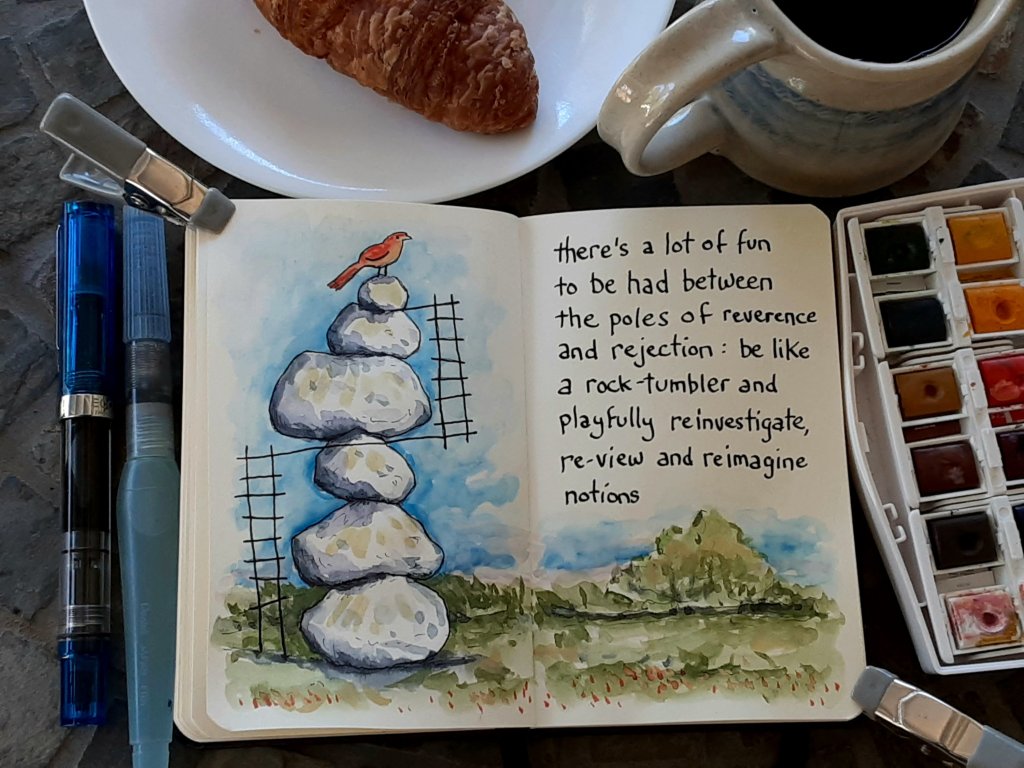 there's a lot of fun
to be had between
the poles of reverence
and rejection: be like
a rock-tumbler and
playfully reinvestigate,
re-view and reimagine
notions